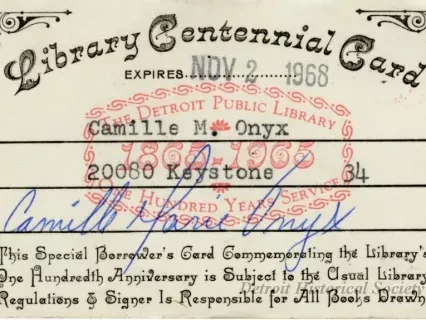 Library Centennial Card
EXPIRES NOV 2 1968
THE DETROIT PUBLIC LIBRARY
Camille M. Onyx
1865 1965
20080 Keystone 34
ONE HUNDRED YEARS SERVICE
Camille Marie Onyx
This Special Borrower's Card Commemorating the Library's
One Hundredth Anniversary is Subject to the Usual Library
Regulations & Signer Is Responsible for All Books Drawn
Detroit Historical Society